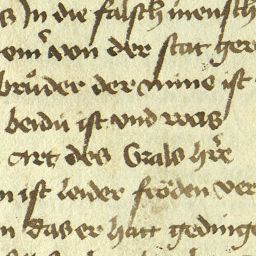 s In die falsch mensch
om̄ von der stat ger
brůder der mine ist
beidu ist vnd was
art des Grals h̄re
n ist leider fröden ver
n das er hatt gedinge